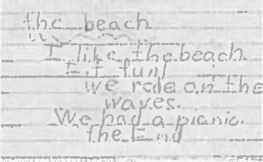 the beach
I like the beach.
It fun!
we rode on the
waves.
We had a picnic.
the End